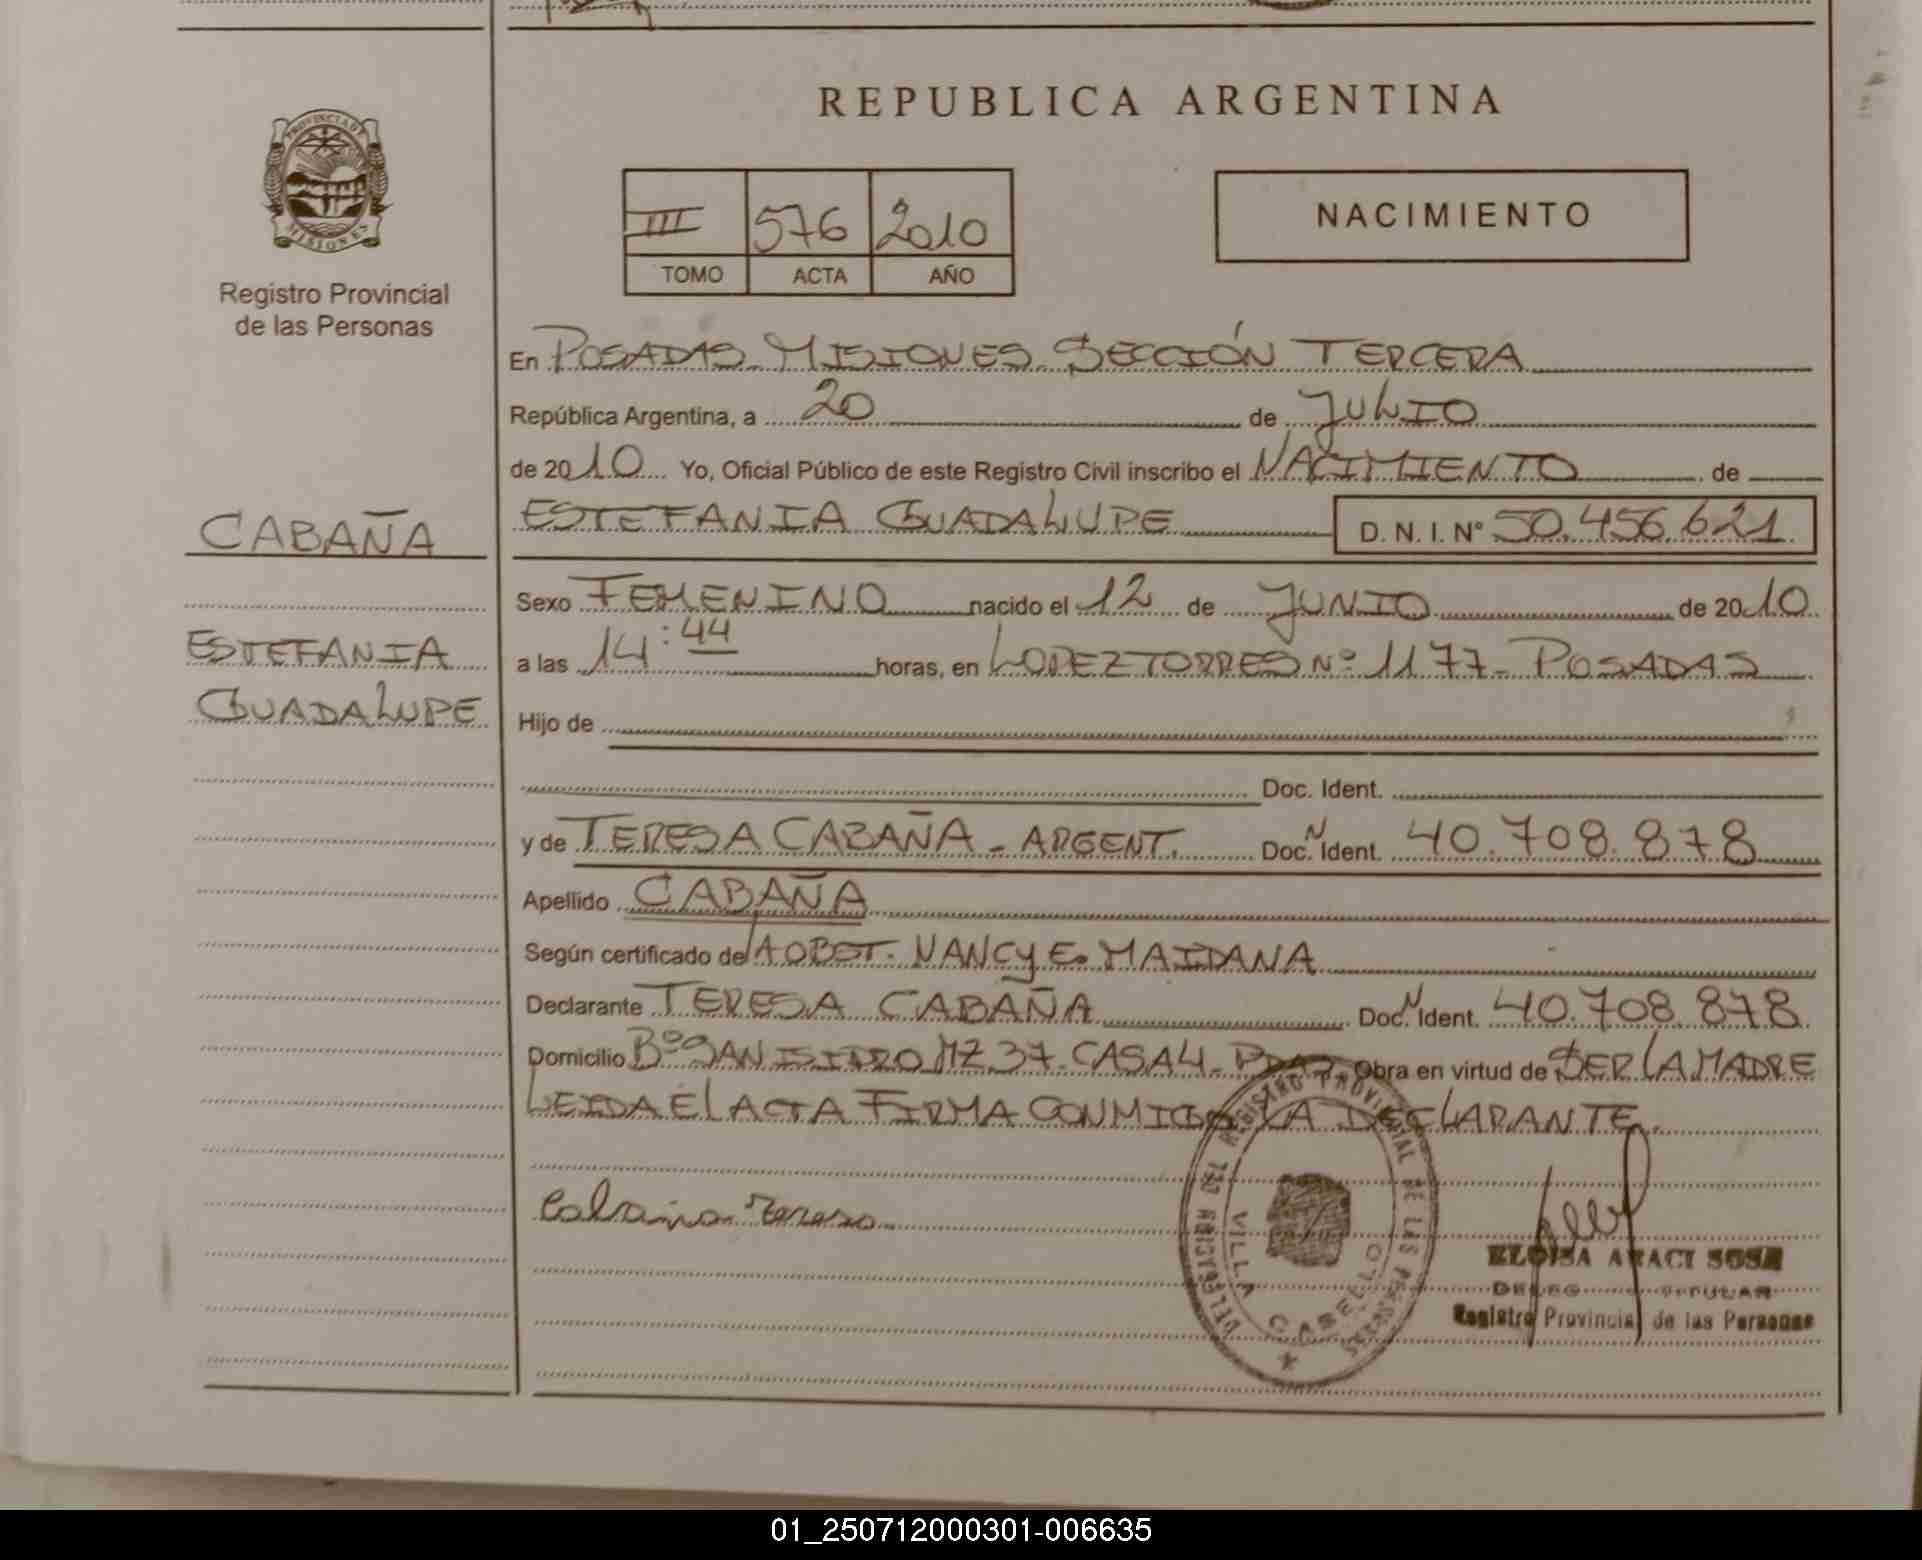 REPUBLICA ARGENTINA
PROVINCIA DE
MISIONES
Registro Provincial
de las Personas
III 576 2010
TOMO ACTA AÑO
NACIMIENTO
En POSADAS - MISIONES - SECCIÓN TERCERA
República Argentina, a 20 de JULIO
de 2010 Yo, Oficial Público de este Registro Civil inscribo el NACIMIENTO de
CABAÑA
ESTEFANIA GUADALUPE D. N. I. Nº 50.456.621
Sexo FEMENINO nacido el 12 de JUNIO de 2010
ESTEFANIA
GUADALUPE
a las 14:44 horas, en LOPEZ TORRES Nº 1177 - POSADAS
Hijo de
Doc. Ident.
y de TERESA CABAÑA - ARGENT. Doc. N. Ident. 40.708.878
Apellido CABAÑA
Según certificado de LA OBST. NANCY E. MAIDANA
Declarante TERESA CABAÑA Doc. N. Ident. 40.708.878
Domicilio Bº SAN ISIDRO MZ 37 - CASA 4 - PDAS Obra en virtud de SER LA MADRE
LEIDA EL ACTA FIRMA CONMIGO LA DECLARANTE.
Cabaña Teresa
REGISTRO PROVINCIAL DE LAS PERSONAS
DELEGACION
VILLA CABELLO
ELOISA ARACI SOSA
DELEG TITULAR
Registro Provincial de las Personas
01_250712000301-006635